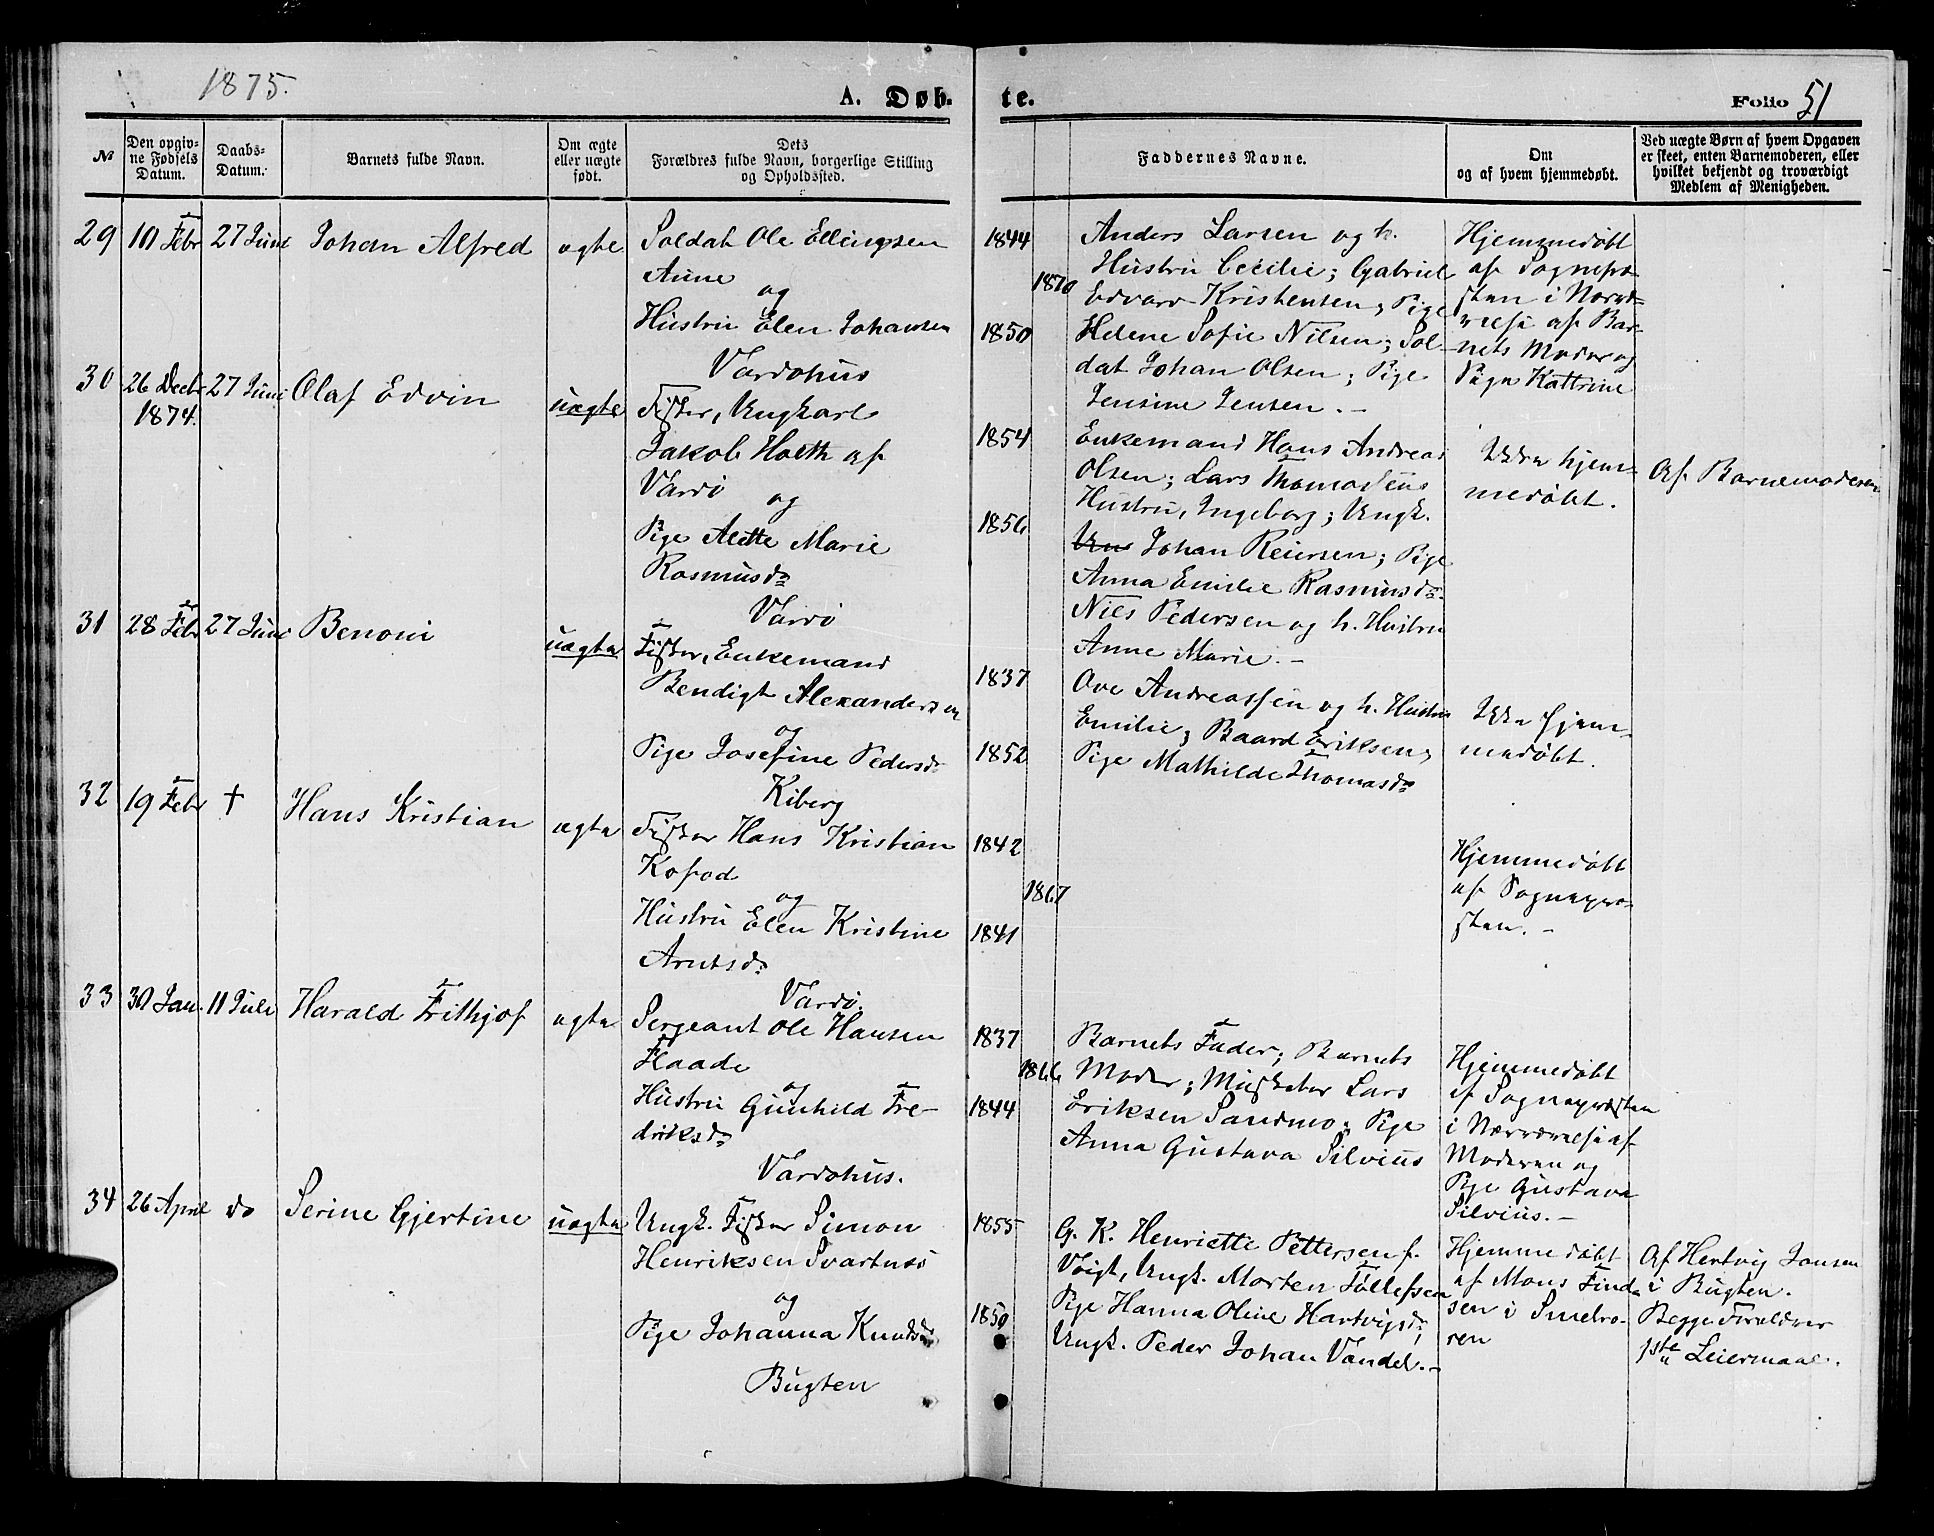 1875.
A. Døb-
te.
Folio 51
№
Den opgiv-
ne Fødsels
Datum.
Daabs-
Datum.
Barnets fulde Navn.
Om ægte
eller uægte
født.
Dets
Forældres fulde Navn, borgerlige Stilling
og Opholdssted.
Faddernes Navne.
Om
og af hvem hjemmedøbt.
Ved uægte Børn af hvem Opgaven
er skeet, enten Barnemoderen, eller
hvilket bekjendt og troværdigt
Medlem af Menigheden.
29
10 Febr
27 Juni
Johan Alfred
ægte
Soldat Ole Ellingsen
Aune
og
Hustru Elen Johansen
Vardøhus
1844
1870
1850
Anders Larsen og h.
Hustru Cecilie; Gabriel
Edvard Kristensen, Pige
Helene Sofie Nilsen; Sol-
dat Johan Olsen; Pige
Jensine Jensen. -
Hjemmedøbt
af Sognepræ-
sten i Nærvæ-
relse af Bar-
nets Moder og
Pige Kattrine
30
26 Decbr
1874.
27 Juni
Olaf Edvin
uægte
Fisker, Ungkarl
Jakob Holth af
Vardø
og
Pige Alette Marie
Rasmusdr
Vardø
1854
1856
Enkemand Hans Andreas
Olsen; Lars Thomassens
Hustru, Ingeborg; Ungk.
Johan Reiersen; Pige
Anna Emilie Rasmusdr.
Nils Pedersen og h. Hustru
Anne Marie. -
Ikke hjem-
medøbt.
Af Barnemoderen
31
28 Febr
27 Juni
Benoni
uægte
Fisker, Enkemand
Bendigt Alexandersen
og
Pige Josefine Pedersdr
Kiberg
1837
1852
Ove Andreassen og h. Hustru
Emilie; Baard Eriksen,
Pige Mathilde Thomasdr
Ikke hjem-
medøbt.
32
19 Febr
†
Hans Kristian
ægte
Fisker Hans Kristian
Kofod
og
Hustru Elen Kristine
Arntsdr
Vardø.
1842
1867
1841
Hjemmedøbt
af Sognepræ-
sten. -
33
30 Jan.
11 Juli
Harald Frithjof
ægte
Sergeant Ole Hansen
Flaade
og
Hustru Gunhild Fre-
driksdr
Vardøhus.
1837
1866
1844
Barnets Fader; Barnets
Moder; Musketer Lars
Eriksen Sandmo; Pige
Anna Gustava Silvius
Hjemmedøbt
af Sognepræsten
i Nærværelse af
Moderen og
Pige Gustava
Silvius. -
34
26 April
do
Serine Gjertine
uægte
Ungk. Fisker Simon
Henriksen Svartnes
og
Pige Johanna Knudsdr
Bugten
1855
1850
G. K. Henriette Pettersen f.
Voigt, Ungk. Morten Tollefsen
Pige Hanna Oline Hartvigsdr,
Ungk. Peder Johan Vandel. -
Hjemmedøbt
af Mons Finda
sen i Smelro-
ren
Af Hertvig Jansen
i Bugten.
Begge Forældrer
1ste Leiermaal.